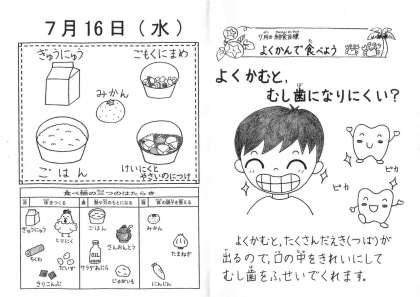 7月16日(水)
ぎゅうにゅう
ごもくにまめ
みかん
ごはん
けいにくと
やさいのにつけ
食べ物の三つのはたらき
ぎゅうにゅう
とりにく
ちくわ
だいず
きりこんぶ
ごはん
さんおんとう
サラダあぶら
じゃがいも
みかん
たまねぎ
にんじん
7月の給食目標
よくかんで食べよう
よくかむと、
むし歯になりにくい?
ピカ
ピカ
よくかむと、たくさんだえき(つば)が
出るので、口の中をきれいにして
むし歯をふせいでくれます。